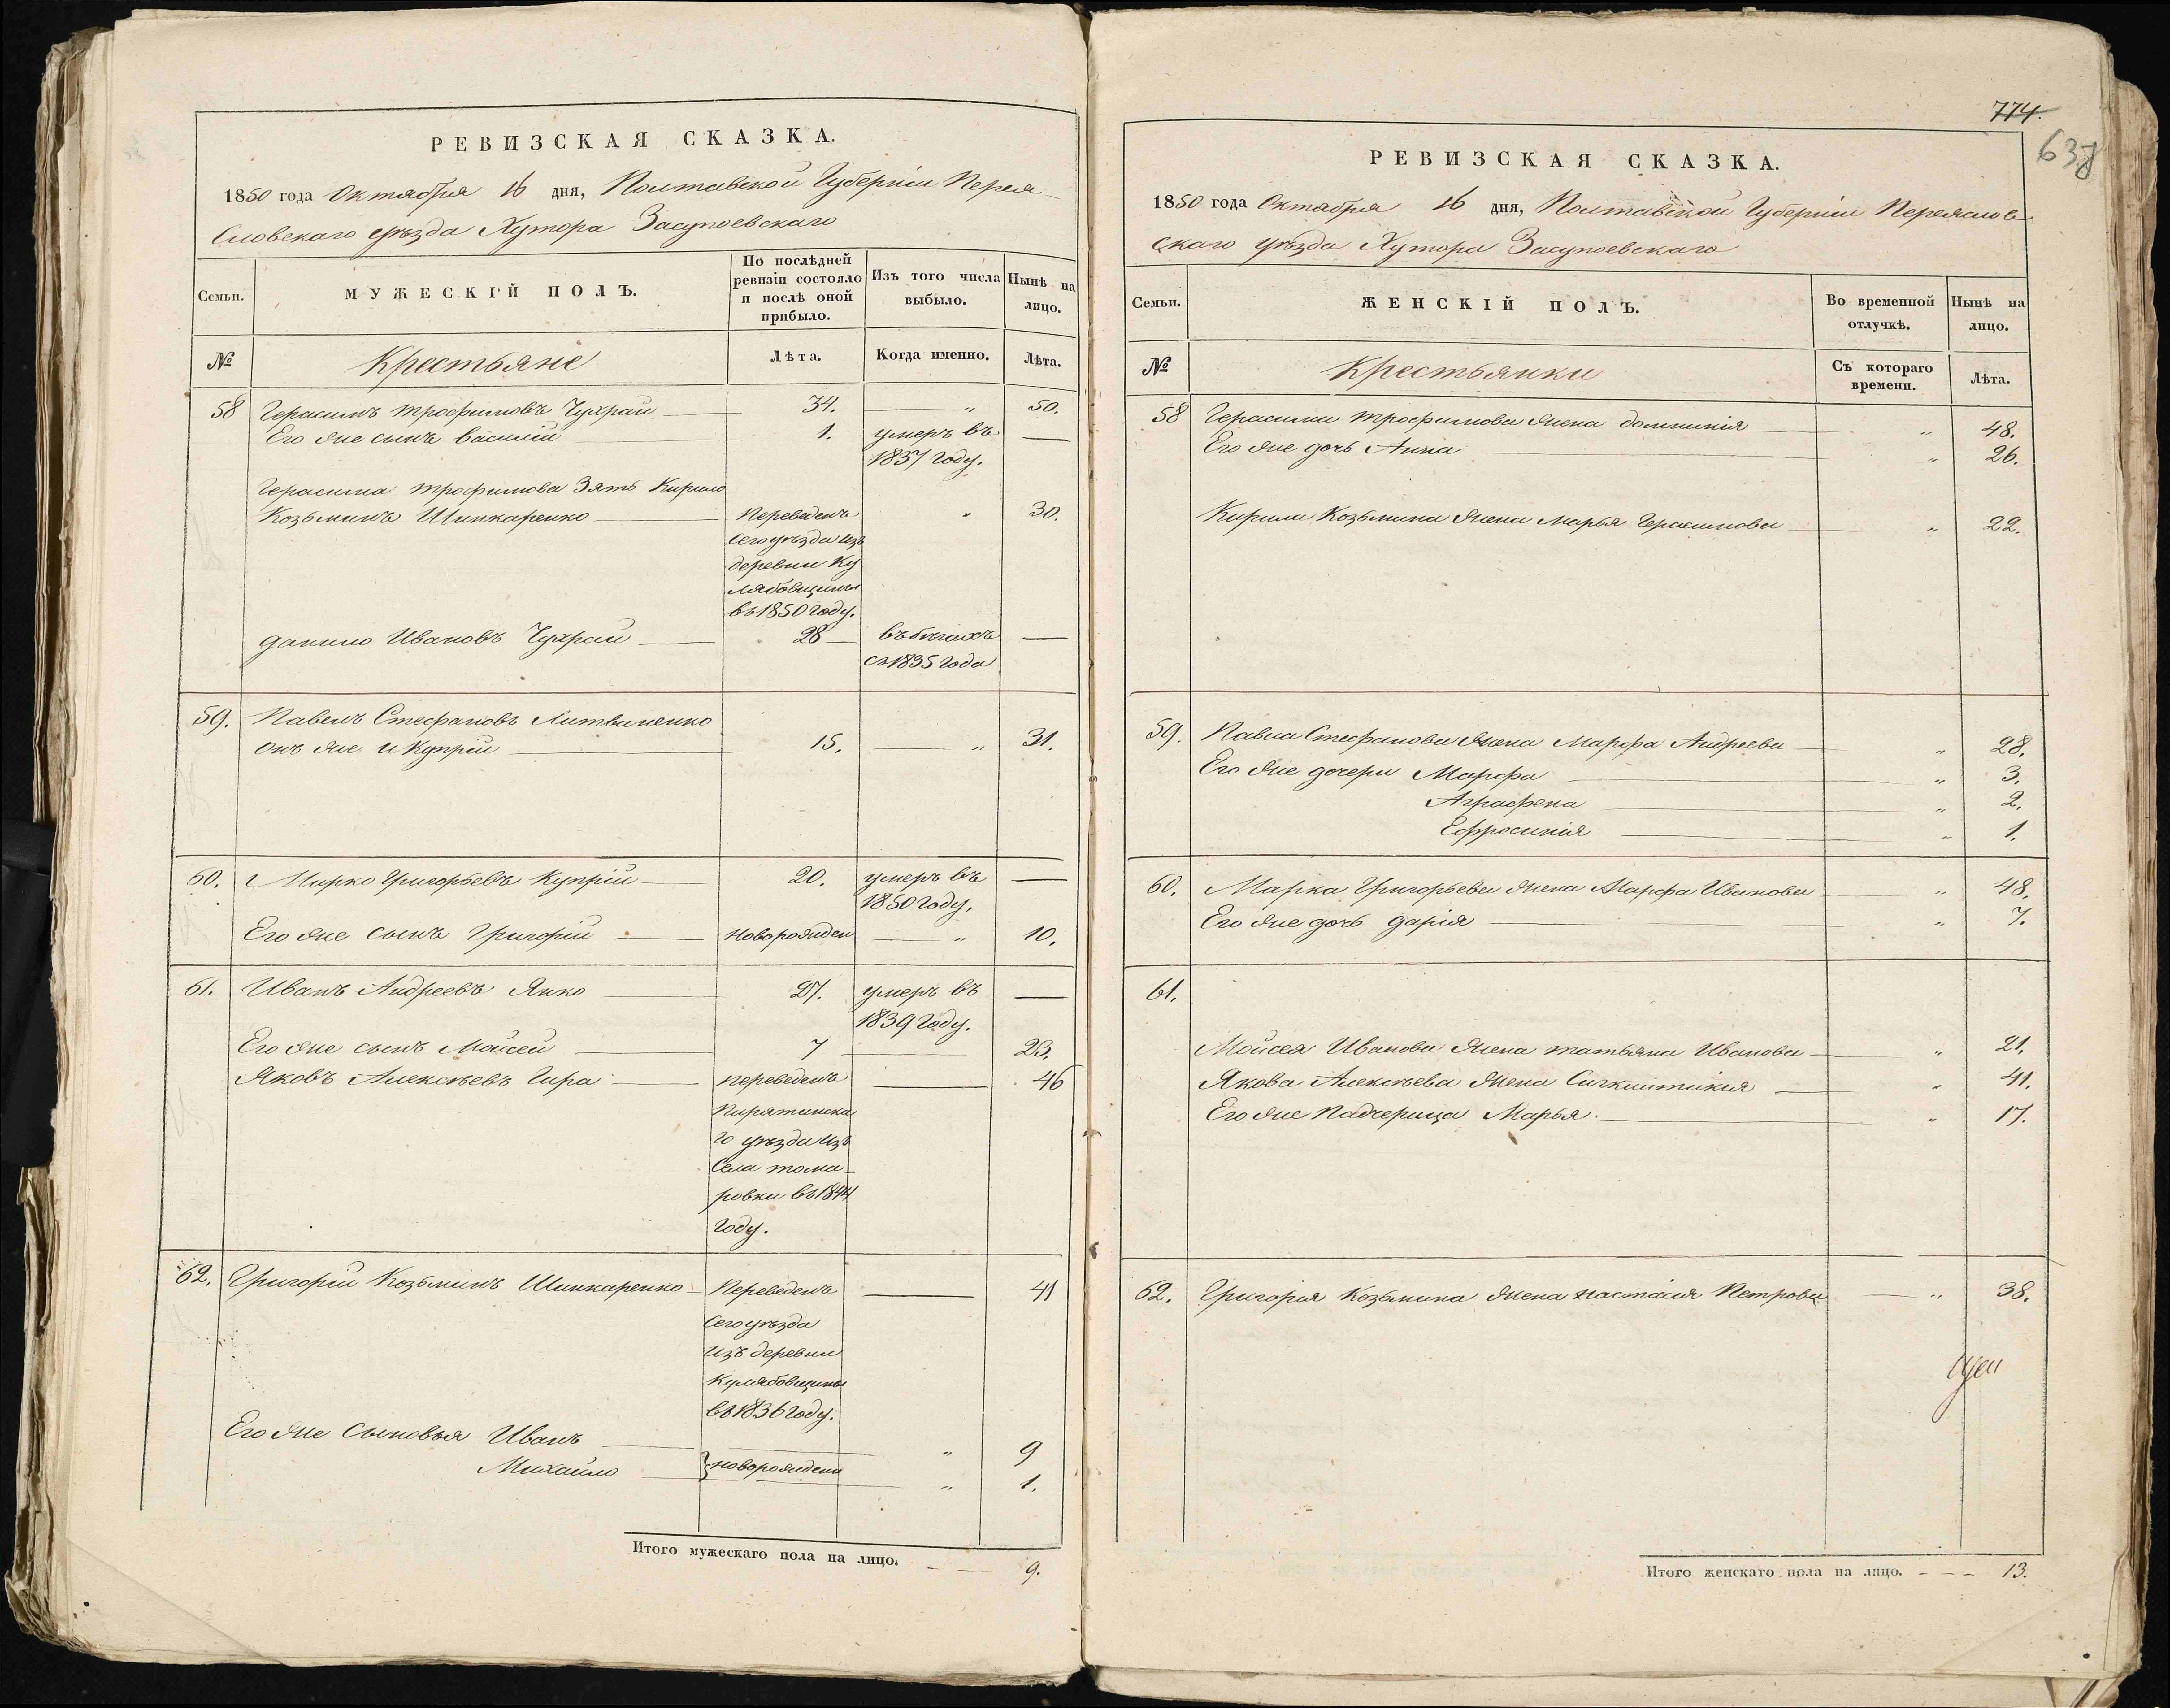 РЕВИЗСКАЯ СКАЗКА.
1850 года Октября 16 дня, Полтавской Губерніи Перея-
словскаго уѣзда Хутора Засупоевскаго
Семьи.
МУЖЕСКІЙ ПОЛЪ.
По послѣдней ревизіи состояло и послѣ оной прибыло.
Изъ того числа выбыло.
Нынѣ на лицо.
№
Крестьяне
Лѣта.
Когда именно.
Лѣта.
58 Герасимъ Трофимовъ Чухрай 34. „ 50.
Его же сынъ Василій 1. умеръ въ
1837 году.
Герасима Трофимова Зять Кирило
Козьминъ Шинкаренко Переведенъ „ 30.
сего уѣзда изъ
деревни Ку
лябовщины
въ 1850 году.
Данило Ивановъ Чухрай 28 въ бѣгахъ
съ 1835 года
59. Павелъ Стефановъ Литвиненко
онъ же и Купрій 15. „ 31.
60. Марко Григорьевъ Купрій 20. умеръ въ
1850 году.
Его же сынъ Григорій новорожден „ 10.
61. Иванъ Андреевъ Янко 27. умеръ въ
1839 году.
Его же сынъ Мойсей 7 23.
Яковъ Алексѣевъ Гира переведенъ 46
Пирятинска
го уѣзда изъ
Села Тома-
ровки въ 1844
году.
62. Григорій Козьминъ Шинкаренко Переведенъ 41
сего уѣзда
изъ деревни
Кулябовщины
въ 1836 году.
Его же Сыновья Иванъ „ 9
Михайло новорождени „ 1.
Итого мужескаго пола на лицо. 9.
774.
637
РЕВИЗСКАЯ СКАЗКА.
1850 года Октября 16 дня, Полтавской Губерніи Переяслов-
скаго уѣзда Хутора Засупоевскаго
Семьи.
ЖЕНСКІЙ ПОЛЪ.
Во временной отлучкѣ.
Нынѣ на лицо.
№
Крестьянки
Съ котораго времени.
Лѣта.
58 Герасима Трофимова жена Домникія „ 48.
Его же дочь Анна „ 26.
Кирила Козьмина жена Марья Герасимова „ 22.
59. Павла Стефанова жена Марфа Андреева „ 28.
Его же дочери Марфа „ 3.
Аграфена „ 2.
Ефросинія „ 1.
60. Марка Григорьева жена Марфа Иванова „ 48.
Его же дочь Дарія „ 7.
61.
Мойсея Иванова жена Татьяна Иванова „ 21.
Якова Алексѣева жена „ 41.
Его же Падчерица Марья „ 17.
62. Григорія Козьмина жена Настасія Петрова „ 38.
Итого женскаго пола на лицо. 13.